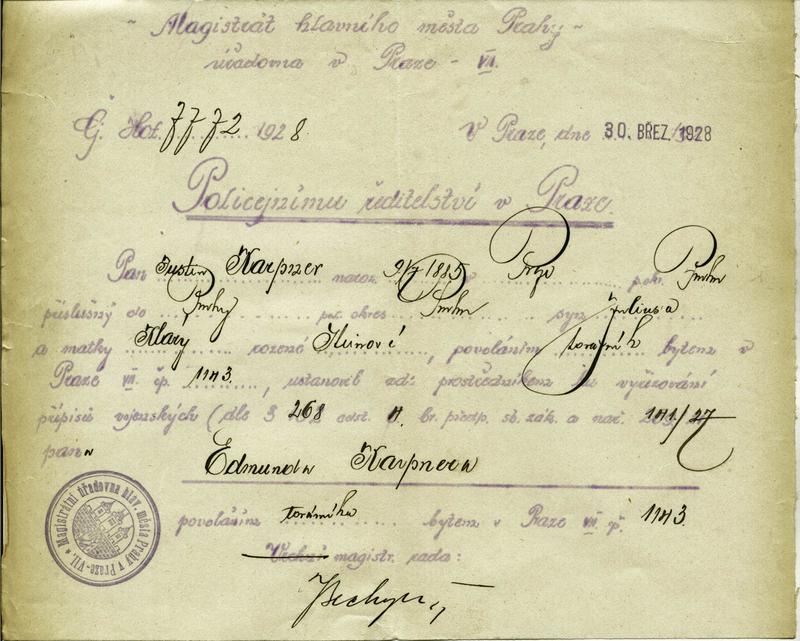 ~ Magistrát hlavního města Prahy ~
úřadovna v Praze - VII.
Č. Hot. 7772 1928
V Praze, dne 30. BŘEZ. 1928
Policejnímu ředitelství v Praze.
Pan Karpner naroz. 1885 pol.
příslušný do Prahy pol. okres syn Juliusa
a matky Klary rozené, povoláním továrník bytem v
Praze VII. čp. 1143, ustanovil za prostředníkem ku vyřizování
přípisů vojenských (dle § 268 odst. 4. br. předp. sb. zák. a nař. 141/27
pana
Edmunda Karpnera
povoláním továrníka bytem v Praze VII. čp. 1143.
magistr. rada:
Magistrátní úřadovna hlav. města Prahy v Praze-VII.